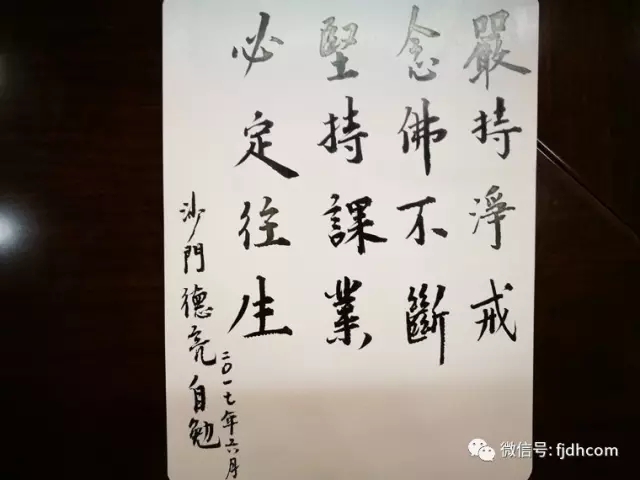 嚴持淨戒
念佛不斷
堅持課業
必定往生
沙門德亮自勉
二〇一七年六月
微信号: fjdhcom